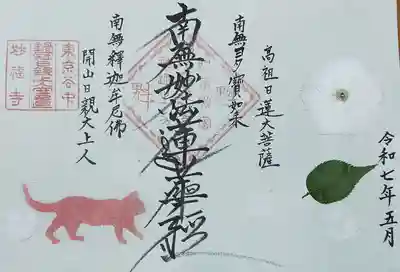 令和七年五月
高祖日蓮大菩薩
南無多寶如来
南無妙法蓮華経
南無釋迦牟尼佛
開山日親大上人
東京谷中
妙福寺